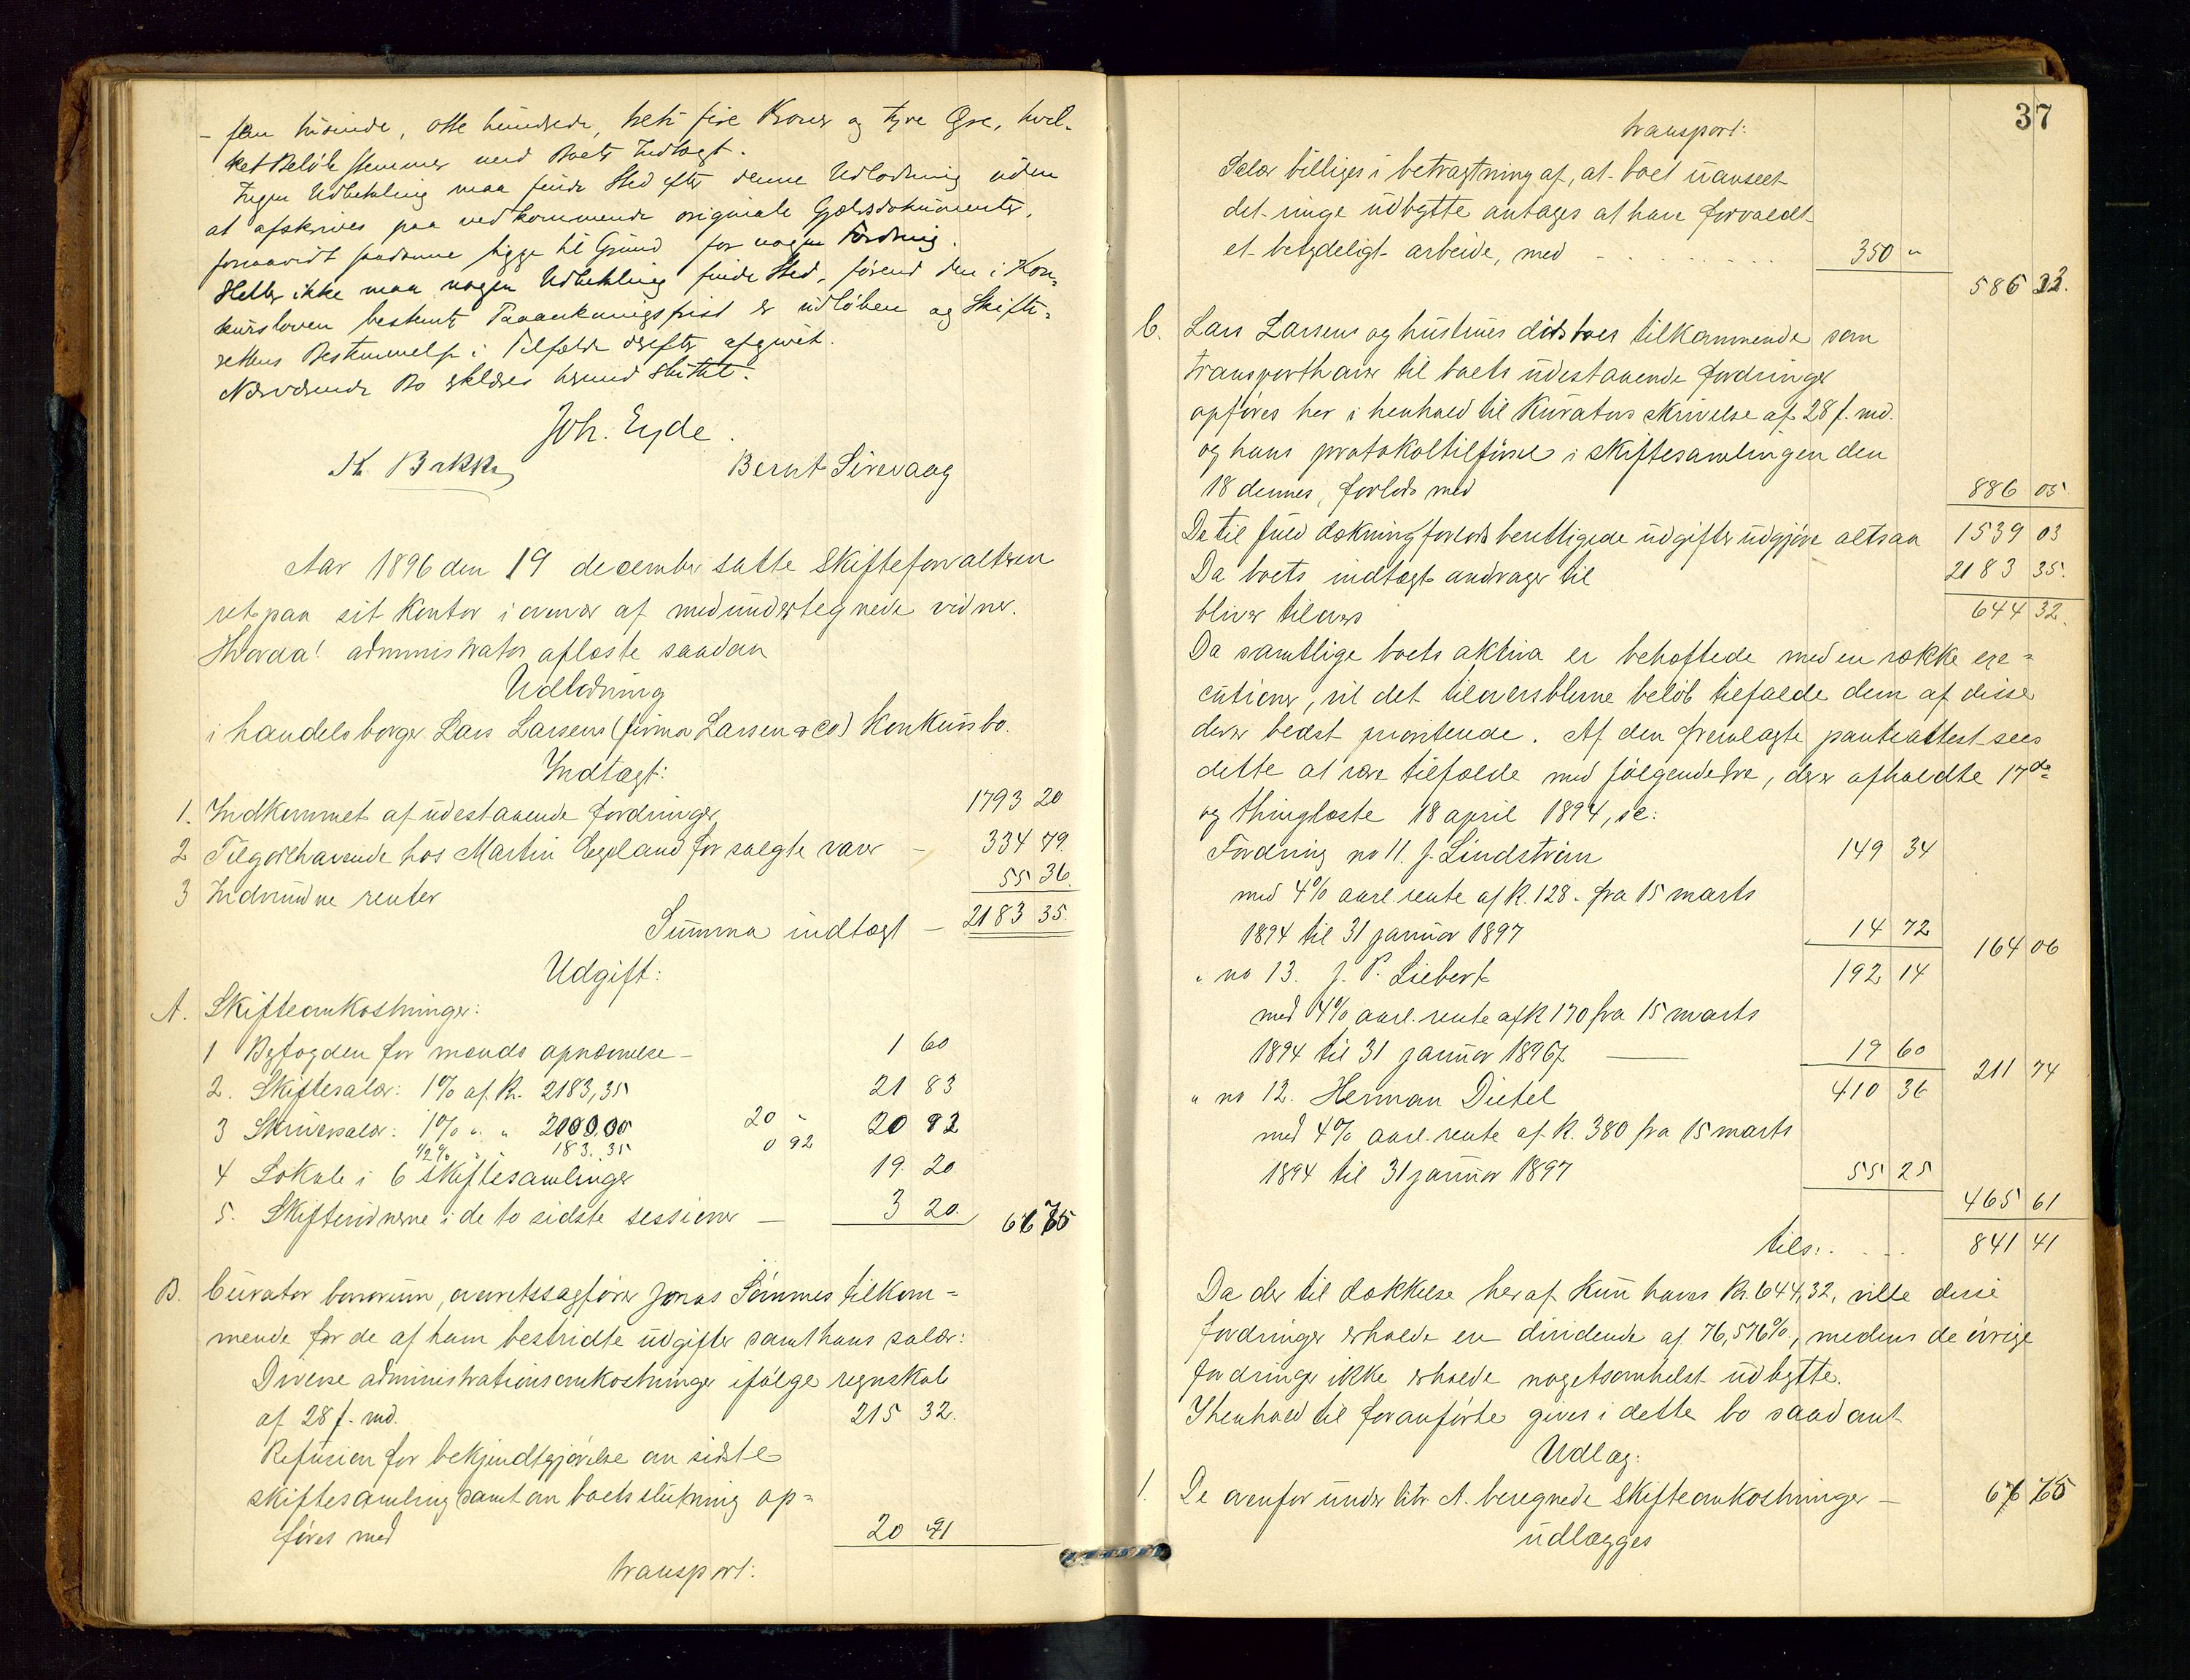 - fem tusinde, otte hundrede, treti fire Kroner og tyve Øre, hvil-
ket Beløb stemmer med Boets Indtægt.
Ingen Udbetaling maa finde Sted efter denne Udlodning uden
at afskrives paa vedkommende originale Gjældsdokumenter,
forsaavidt saadanne ligge til Grund for nogen Fordring.
Heller ikke maa nogen Udbetaling finde Sted, førend den i Kon-
kursloven bestemte Paaankningsfrist er udløben og Skifte-
rettens Bestemmelse i Tilfælde derefter afgivet.
Nærværende Bo erklæres hermed sluttet.
Joh. Eyde.
K. Bakke Bernt Sirevaag
Aar 1896 den 19 december satte skifteforvalteren
ret paa sit kontor i overvær af medundertegnede vidner.
Hvorda! administrator aflæste saadan
Udlodning
i handelsborger Lars Larsens (firma Larsen & Co) konkursbo.
Indtægt:
1. Indkommet af udestaaende fordringer 1793 20
2 Tilgodehavende hos Martin Egeland for solgte varer - 334 79.
3 Indvundne renter 55 36.
Summa indtægt - 2183 35.
Udgift:
A. Skifteomkostninger:
1 Byfogden for mænds opnævnelse - 1 60
2. Skiftesalær: 1% af Kr. 2183,35 21 83
3 Skriversalær: 1% " " 2000,00 20 " 20 92
1/2% " " 183.35 0 92
4 Lokale i 6 skiftesamlinger 19 20
5. Skiftevidnerne i de to sidste sessioner - 3 20. 66 75
B. Curator bonorum, overretssagfører Jonas Sømmes tilkom-
mende for de af ham bestridte udgifter samt hans salær:
Diverse administrationsomkostninger ifølge regnskab
af 28 f. md. 215 32.
Refusion for bekjendtgjørelse om sidste
skiftesamling samt om boets slutning op-
føres med 20 91
transport:
37
transport:
Salær billiges i betragtning af, at boet uanseet
det ringe udbytte antages at have forvoldt
et betydeligt arbeide, med - . . . . . . . 350 "
586 23.
C. Lars Larsens og hustrues dødsboes tilkommende som
transporthaver til boets udestaaende fordringer
opføres her i henhold til kurators skrivelse af 28 f. md.
og hans protokoltilførsel i skiftesamlingen den
18 dennes, forlods med 886 05
De til fuld dækning forlods berettigede udgifter udgjøre altsaa 1539 03
Da boets indtægt andrager til 2183 35.
bliver tilovers 644 32.
Da samtlige boets aktiva er behæftede med en række exe-
cutioner, vil det tiloversblevne beløb tilfalde dem af disse
der er bedst prioriterede. Af den fremlagte panteattest sees
dette at være tilfælde med følgende tre, der er afholdte 17de
og thinglæste 18 april 1894, sc:
Fordring no 11. J. Lindstrøm 149 34
med 4% aarl. rente af K. 128. fra 15 marts
1894 til 31 januar 1897 14 72
164 06
" no 13. J. P. Siebert 192 14
med 4% aarl. rente af K 170 fra 15 marts
1894 til 31 januar 1897 19 60
211 74
" no 12. Herman Dietel 410 36
med 4% aarl. rente af K. 380 fra 15 marts
1894 til 31 januar 1897 55 25
465 61
tils: . . . . 841 41
Da der til dækkelse heraf kun haves Kr. 644,32, ville disse
fordringer erholde en dividende af 76,576%, medens de øvrige
fordringer ikke erholde nogetsomhelst udbytte.
I henhold til foranførte gives i dette bo saadant
Udlæg:
1. De ovenfor under litr. A. beregnede skifteomkostninger - 66 75
udlægges